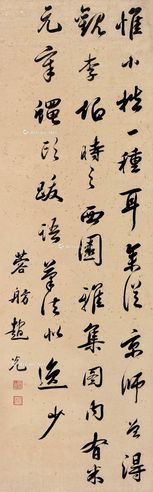 惟小楷一種耳年從京師曾得
觀李伯時之西園雅集圖內有米
元章蠅頭跋語筆法似逸少
蓉舫趙光